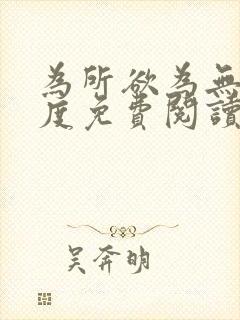 為所欲為無
度免費閱讀
吴奔明